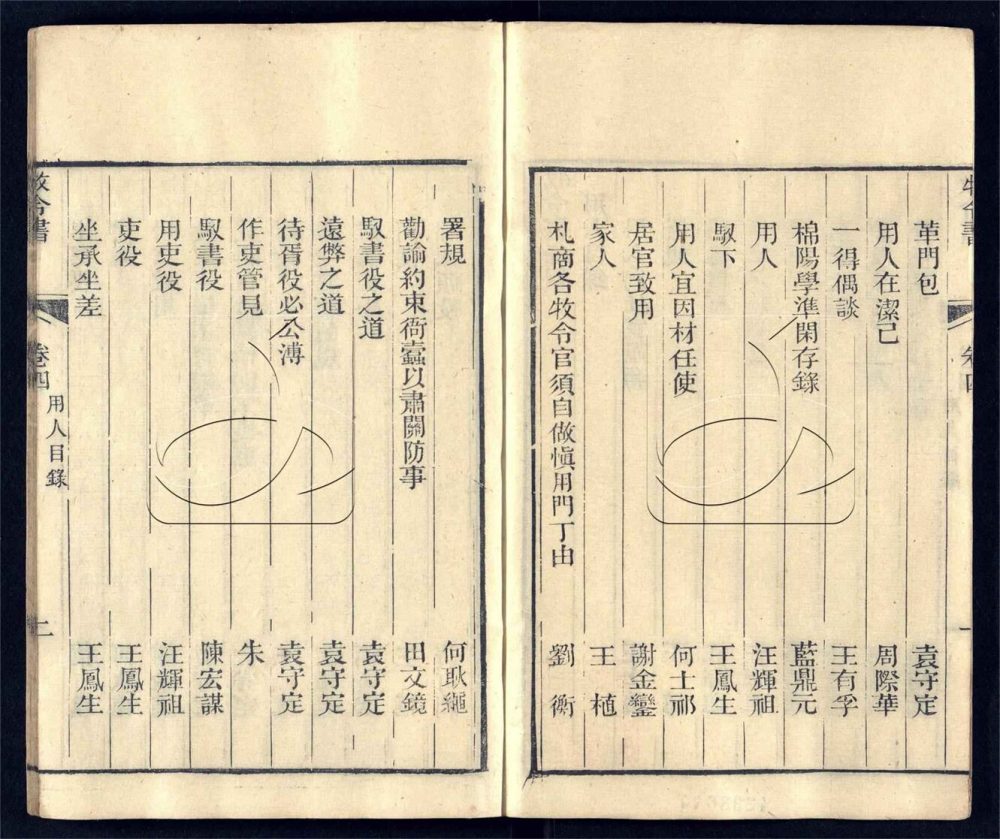 革門包 袁守定
用人在潔己 周際華
一得偶談 王有孚
棉陽學準閑存錄 藍鼎元
用人 汪輝祖
馭下 王鳳生
用人宜因材任使 何士祁
居官致用 謝金鑾
家人 王植
札商各牧令官須自做慎用門丁由 劉衡
署規 何耿繩
勸諭約束衙蠹以肅關防事 田文鏡
馭書役之道 袁守定
遠弊之道 袁守定
待胥役必公溥 袁守定
作吏管見 朱
馭書役 陳宏謀
用吏役 汪輝祖
吏役 王鳳生
坐承坐差 王鳳生
牧令書 卷四 用人目錄 二